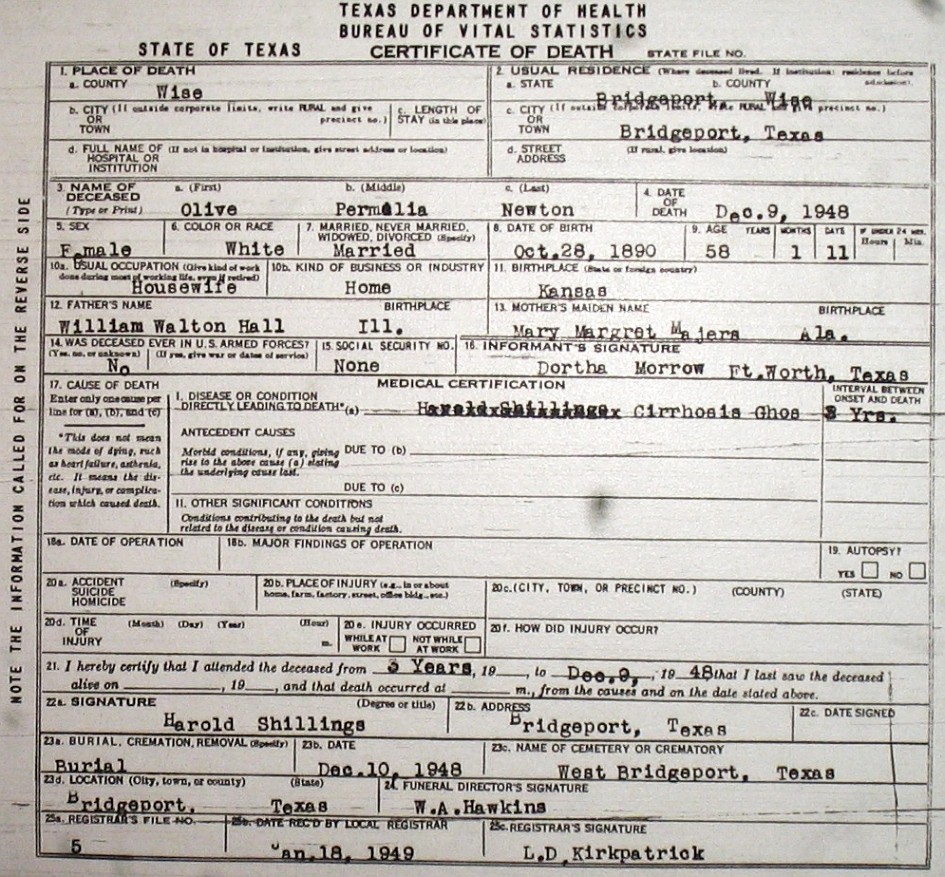 TEXAS DEPARTMENT OF HEALTH
BUREAU OF VITAL STATISTICS
STATE OF TEXAS CERTIFICATE OF DEATH STATE FILE NO.
1. PLACE OF DEATH
a. COUNTY Wise
2. USUAL RESIDENCE (Where deceased lived. If institution: residence before admission).
a. STATE b. COUNTY
Bridgeport, Wise
b. CITY (If outside corporate limits, write RURAL and give precinct no.) OR TOWN
c. LENGTH OF STAY (in this place)
c. CITY (If outside corporate limits, write RURAL and give precinct no.) OR TOWN
Bridgeport, Texas
d. FULL NAME OF (If not in hospital or institution, give street address or location) HOSPITAL OR INSTITUTION
d. STREET ADDRESS (If rural, give location)
3. NAME OF DECEASED (Type or Print) a. (First) b. (Middle) c. (Last)
Olive Permelia Newton
4. DATE OF DEATH Dec.9, 1948
5. SEX Female
6. COLOR OR RACE White
7. MARRIED, NEVER MARRIED, WIDOWED, DIVORCED (Specify) Married
8. DATE OF BIRTH Oct.28, 1890
9. AGE YEARS MONTHS DAYS IF UNDER 24 HRS. Hours Min.
58 1 11
10a. USUAL OCCUPATION (Give kind of work done during most of working life, even if retired) Housewife
10b. KIND OF BUSINESS OR INDUSTRY Home
11. BIRTHPLACE (State or foreign country) Kansas
12. FATHER'S NAME BIRTHPLACE
William Walton Hall Ill.
13. MOTHER'S MAIDEN NAME BIRTHPLACE
Mary Margret Majers Ala.
14. WAS DECEASED EVER IN U.S. ARMED FORCES? (Yes, no, or unknown) (If yes, give war or dates of service) No
15. SOCIAL SECURITY NO. None
16. INFORMANT'S SIGNATURE
Dortha Morrow Ft.Worth, Texas
17. CAUSE OF DEATH
Enter only one cause per line for (a), (b), and (c)
*This does not mean the mode of dying, such as heart failure, asthenia, etc. It means the disease, injury, or complication which caused death.
MEDICAL CERTIFICATION
INTERVAL BETWEEN ONSET AND DEATH
I. DISEASE OR CONDITION DIRECTLY LEADING TO DEATH* (a) Harold Shillings Cirrhosis Ghos 3 Yrs.
ANTECEDENT CAUSES
Morbid conditions, if any, giving rise to the above cause (a) stating the underlying cause last.
DUE TO (b)
DUE TO (c)
II. OTHER SIGNIFICANT CONDITIONS
Conditions contributing to the death but not related to the disease or condition causing death.
18a. DATE OF OPERATION
18b. MAJOR FINDINGS OF OPERATION
19. AUTOPSY?
YES NO
20a. ACCIDENT SUICIDE HOMICIDE (Specify)
20b. PLACE OF INJURY (e.g., in or about home, farm, factory, street, office bldg., etc.)
20c. (CITY, TOWN, OR PRECINCT NO.) (COUNTY) (STATE)
20d. TIME OF INJURY (Month) (Day) (Year) (Hour) m.
20e. INJURY OCCURRED
WHILE AT WORK NOT WHILE AT WORK
20f. HOW DID INJURY OCCUR?
21. I hereby certify that I attended the deceased from 3 Years, 19 , to Dec.9, , 19 48 that I last saw the deceased
alive on , 19 , and that death occurred at m., from the causes and on the date stated above.
22a. SIGNATURE (Degree or title)
Harold Shillings
22b. ADDRESS
Bridgeport, Texas
22c. DATE SIGNED
23a. BURIAL, CREMATION, REMOVAL (Specify)
Burial
23b. DATE
Dec.10, 1948
23c. NAME OF CEMETERY OR CREMATORY
West Bridgeport, Texas
23d. LOCATION (City, town, or county) (State)
Bridgeport, Texas
24. FUNERAL DIRECTOR'S SIGNATURE
W.A.Hawkins
25a. REGISTRAR'S FILE NO.
5
25b. DATE REC'D BY LOCAL REGISTRAR
Jan.18, 1949
25c. REGISTRAR'S SIGNATURE
L.D Kirkpatrick
NOTE THE INFORMATION CALLED FOR ON THE REVERSE SIDE